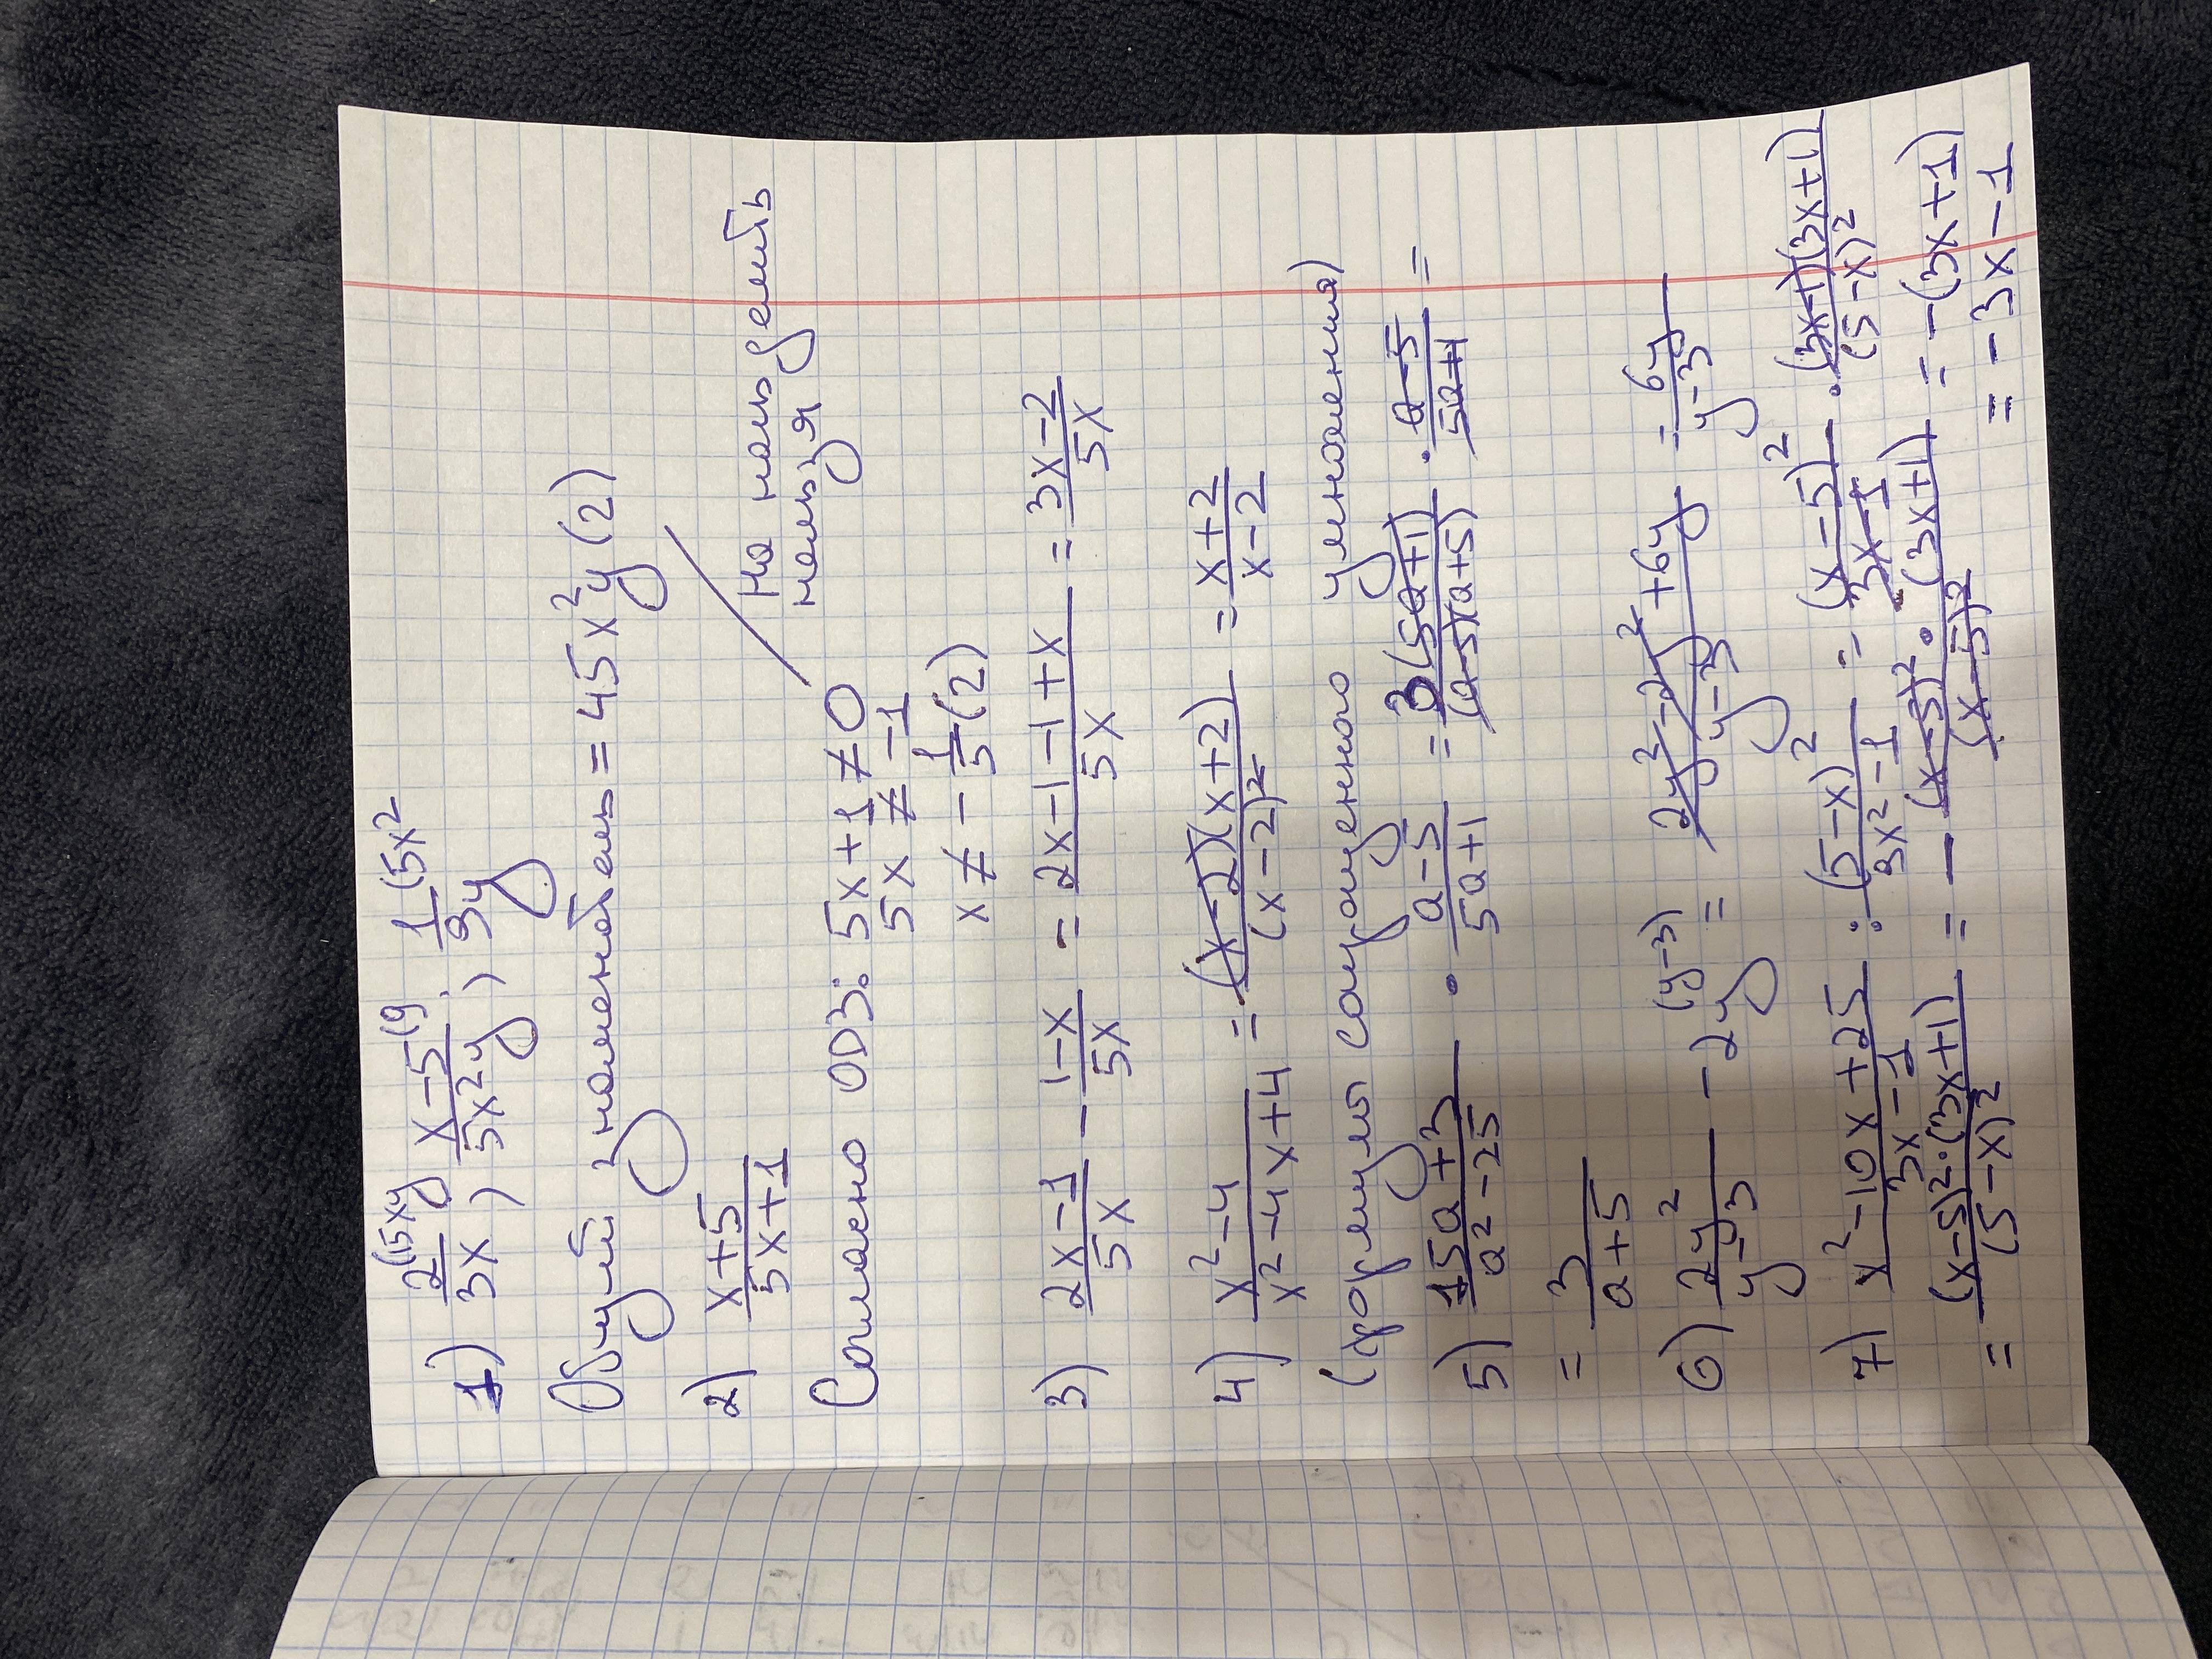 1) 2(15xy / 3x ; x-5(9 / 5x²y ; 1(5x² / 9y
Общий знаменатель = 45x²y (2)
2) x+5 / 5x+1
На ноль делить
нельзя
Согласно ОДЗ: 5x+1 ≠ 0
5x ≠ -1
x ≠ - 1/5 (2)
3) 2x-1 / 5x - 1-x / 5x = 2x-1-1+x / 5x = 3x-2 / 5x
4) x²-4 / x²-4x+4 = (x-2)(x+2) / (x-2)² = x+2 / x-2
(формулы сокращенного умножения)
5) 15a+3 / a²-25 · a-5 / 5a+1 = 3(5a+1) / (a-5)(a+5) · a-5 / 5a+1 =
= 3 / a+5
6) 2y² / y-3 - 2y (y-3) = 2y²-2y²+6y / y-3 = 6y / y-3
7) x²-10x+25 / 3x-1 : (5-x)² / 9x²-1 = (x-5)² / 3x-1 · (3x-1)(3x+1) / (5-x)²
= (x-5)²·(3x+1) / (5-x)² = - (x-5)²·(3x+1) / (x-5)² = -(3x+1)
= -3x-1